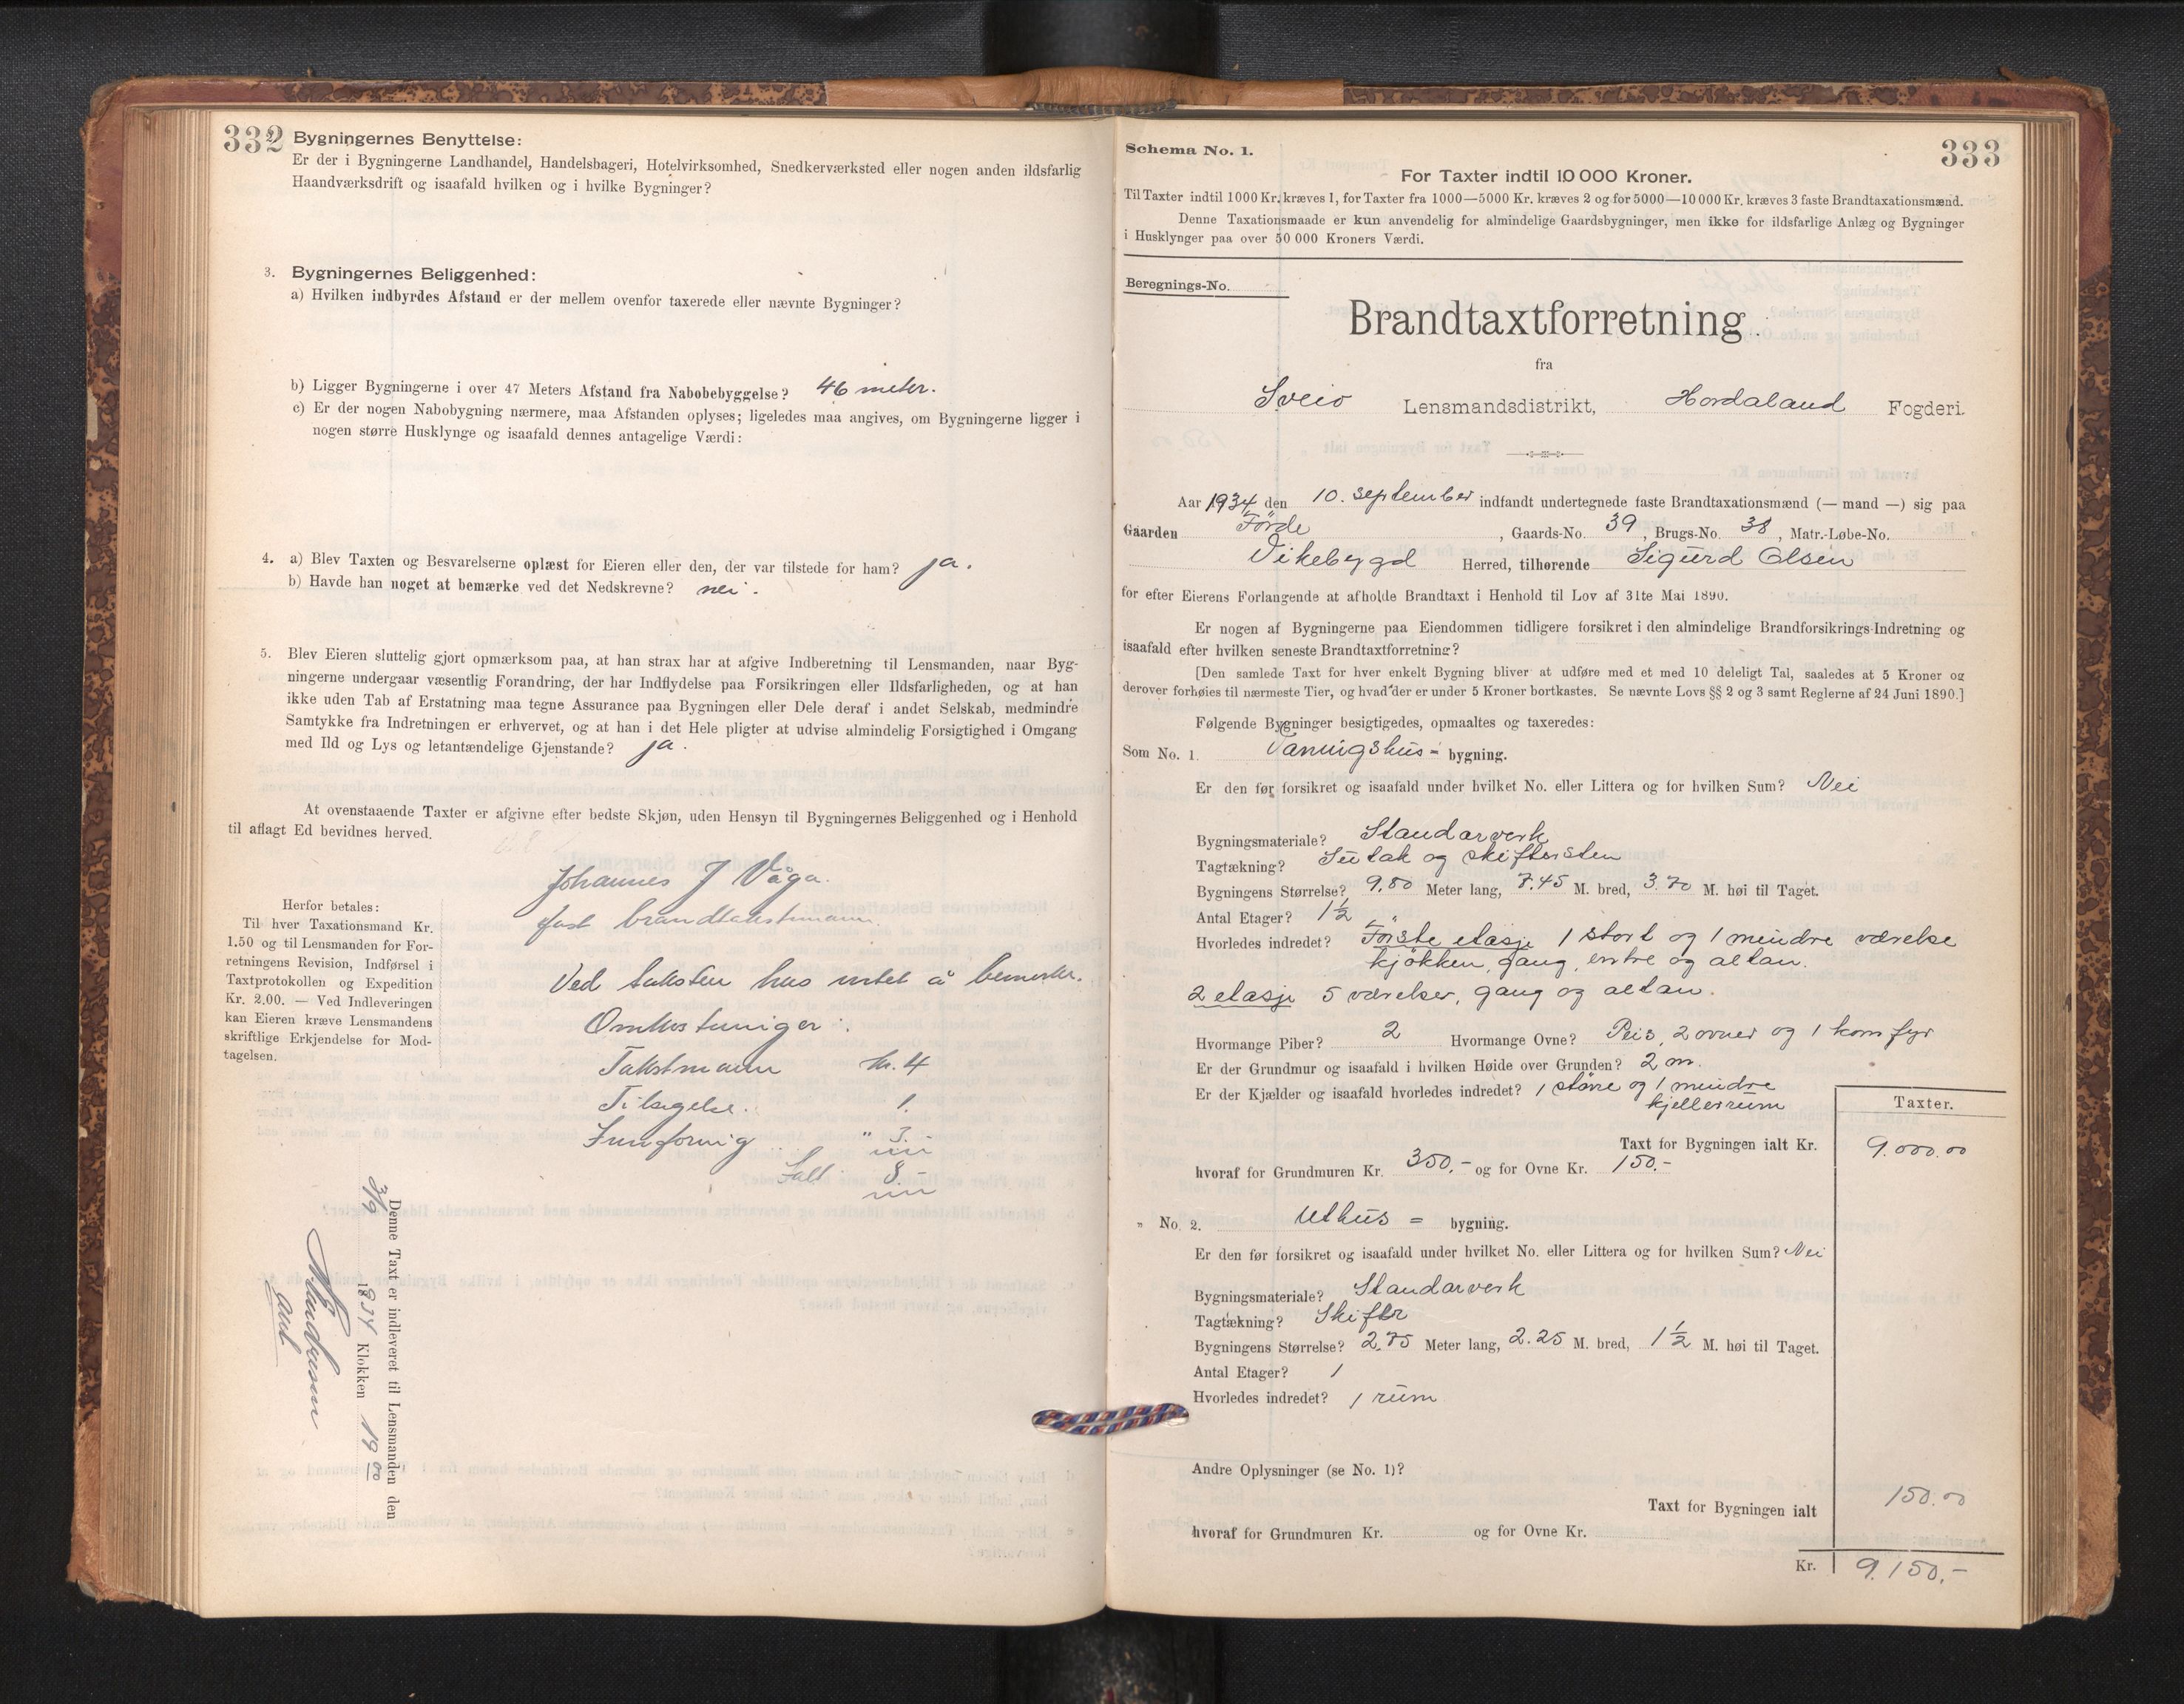 332
Bygningernes Benyttelse:
Er der i Bygningerne Landhandel, Handelsbageri, Hotelvirksomhed, Snedkerværksted eller nogen anden ildsfarlig
Haandværksdrift og isaafald hvilken og i hvilke Bygninger?
3. Bygningernes Beliggenhed:
a) Hvilken indbyrdes Afstand er der mellem ovenfor taxerede eller nævnte Bygninger?
b) Ligger Bygningerne i over 47 Meters Afstand fra Nabobebyggelse? 46 meter.
c) Er der nogen Nabobygning nærmere, maa Afstanden oplyses; ligeledes maa angives, om Bygningerne ligger i
nogen større Husklynge og isaafald dennes antagelige Værdi:
4. a) Blev Taxten og Besvarelserne oplæst for Eieren eller den, der var tilstede for ham? ja.
b) Havde han noget at bemærke ved det Nedskrevne? nei.
5. Blev Eieren sluttelig gjort opmærksom paa, at han strax har at afgive Indberetning til Lensmanden, naar Byg-
ningerne undergaar væsentlig Forandring, der har Indflydelse paa Forsikringen eller Ildsfarligheden, og at han
ikke uden Tab af Erstatning maa tegne Assurance paa Bygningen eller Dele deraf i andet Selskab, medmindre
Samtykke fra Indretningen er erhvervet, og at han i det Hele pligter at udvise almindelig Forsigtighed i Omgang
med Ild og Lys og letantændelige Gjenstande? ja.
At ovenstaaende Taxter er afgivne efter bedste Skjøn, uden Hensyn til Bygningernes Beliggenhed og i Henhold
til aflagt Ed bevidnes herved.
Johannes J Våga.
fast brandtakstmann.
Herfor betales:
Til hver Taxationsmand Kr.
1.50 og til Lensmanden for For-
retningens Revision, Indførsel i
Taxtprotokollen og Expedition
Kr. 2.00. — Ved Indleveringen
kan Eieren kræve Lensmandens
skriftlige Erkjendelse for Mod-
tagelsen.
Ved taksten has intet å bemerke.
Omkostninger:
Takstmann kr. 4
1.
" 3.-
Ialt 8-
Denne Taxt er indleveret til Lensmanden den
3/9 1934 Klokken 19 00
333
Schema No. 1.
For Taxter indtil 10 000 Kroner.
Til Taxter indtil 1000 Kr. kræves 1, for Taxter fra 1000—5000 Kr. kræves 2 og for 5000—10 000 Kr. kræves 3 faste Brandtaxationsmænd.
Denne Taxationsmaade er kun anvendelig for almindelige Gaardsbygninger, men ikke for ildsfarlige Anlæg og Bygninger
i Husklynger paa over 50 000 Kroners Værdi.
Beregnings-No.
Brandtaxtforretning
fra
Sveio Lensmandsdistrikt, Hordaland Fogderi.
Aar 1934 den 10. september indfandt undertegnede faste Brandtaxationsmænd (— mand —) sig paa
Gaarden Förde, Gaards-No. 39, Brugs-No. 38, Matr.-Løbe-No.
Vikebygd Herred, tilhørende Sigurd Olsen
for efter Eierens Forlangende at afholde Brandtaxt i Henhold til Lov af 31te Mai 1890.
Er nogen af Bygningerne paa Eiendommen tidligere forsikret i den almindelige Brandforsikrings-Indretning og
isaafald efter hvilken seneste Brandtaxtforretning?
[Den samlede Taxt for hver enkelt Bygning bliver at udføre med et med 10 deleligt Tal, saaledes at 5 Kroner og
derover forhøies til nærmeste Tier, og hvad der er under 5 Kroner bortkastes. Se nævnte Lovs §§ 2 og 3 samt Reglerne af 24 Juni 1890.]
Følgende Bygninger besigtigedes, opmaaltes og taxeredes:
Som No. 1. Vaningshus= bygning.
Er den før forsikret og isaafald under hvilket No. eller Littera og for hvilken Sum? Nei
Bygningsmateriale? Standarverk
Tagtækning? Sutak og skiftersten
Bygningens Størrelse? 9.80 Meter lang, 7.45 M. bred, 3.70 M. høi til Taget.
Antal Etager? 1½
Hvorledes indredet? Förste etasje 1 stort og 1 mindre værelse
kjökken, gang, entre og altan.
2 etasje 5 værelser, gang og altan.
Hvormange Piber? 2 Hvormange Ovne? Peis, 2 ovner og 1 komfyr
Er der Grundmur og isaafald i hvilken Høide over Grunden? 2 m.
Er der Kjælder og isaafald hvorledes indredet? 1 större og 1 mindre
kjellerrum
Taxter.
Taxt for Bygningen ialt Kr. 9.000.00
hvoraf for Grundmuren Kr. 350.- og for Ovne Kr. 150.-
" No. 2. Uthus = bygning.
Er den før forsikret og isaafald under hvilket No. eller Littera og for hvilken Sum? Nei
Bygningsmateriale? Standarverk
Tagtækning? Skifter
Bygningens Størrelse? 2.75 Meter lang, 2.25 M. bred, 1½ M. høi til Taget.
Antal Etager? 1
Hvorledes indredet? 1 rum
Andre Oplysninger (se No. 1)?
Taxt for Bygningen ialt 150.00
hvoraf for Grundmuren Kr. og for Ovne Kr.
Kr. 9.150.-